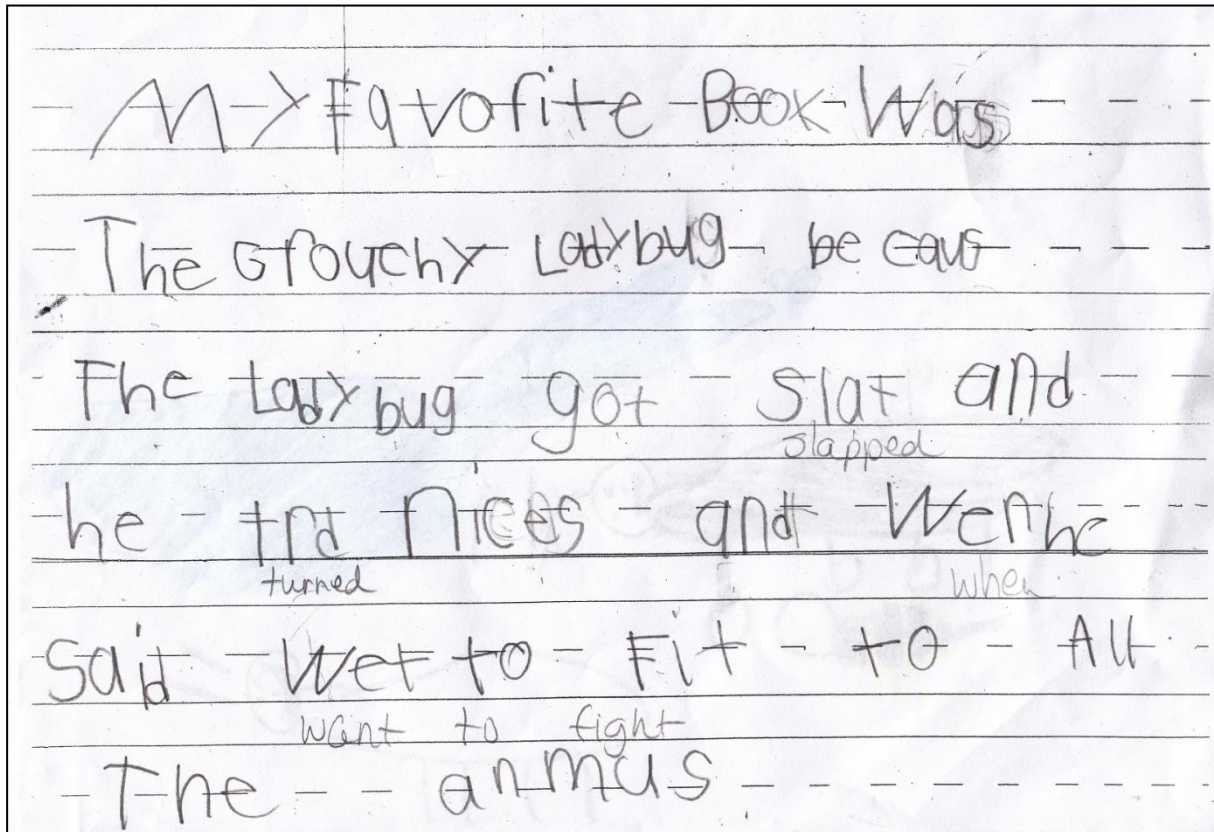 My Favorite Book Was
The Grouchy Ladybug be caus
The Ladybug got slat and
slapped
he trd nices and Wen he
turned when
Said Wet to Fit to All
want to fight
The anmus